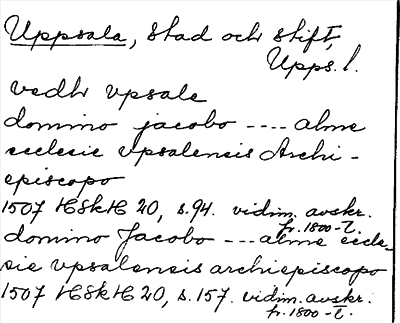 Uppsala, stad och stift,
Upps. l.
vedhr vpsale
domino jacobo ---- alme
ecclesie vpsalensis Archi-
episcopo
1507 HSkH 20, s. 94. vidim. avskr.
fr. 1800-t.
domino Jacobo --- alme eccle-
sie vpsalensis archiepiscopo
1507 HSkH 20, s. 157. vidim. avskr.
fr. 1800-t.